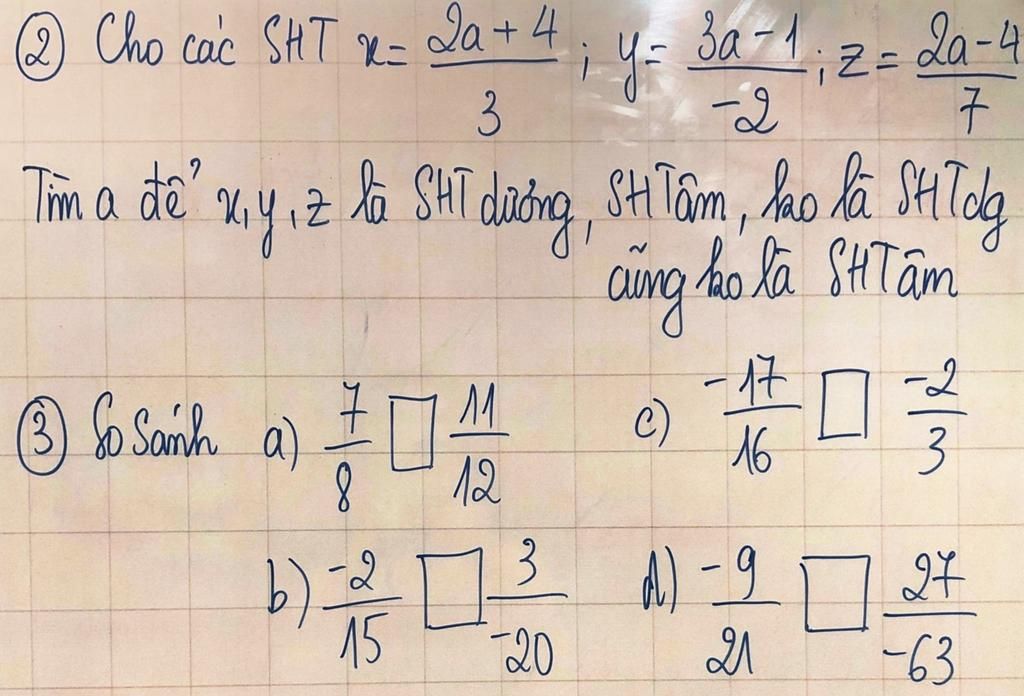 ② Cho các SHT x = (2a + 4)/3 ; y = (3a - 1)/-2 ; z = (2a - 4)/7
Tìm a để x, y, z là SHT dương, SHT âm, ko là SHT dg
cũng ko là SHT âm
③ So sánh a) 7/8 □ 11/12 c) -17/16 □ -2/3
b) -2/15 □ 3/-20 d) -9/21 □ 27/-63